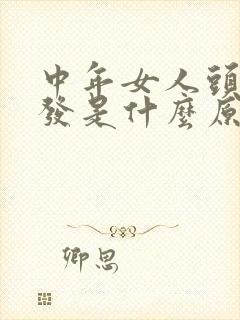 中年女人頭
發是什麼原
卿思